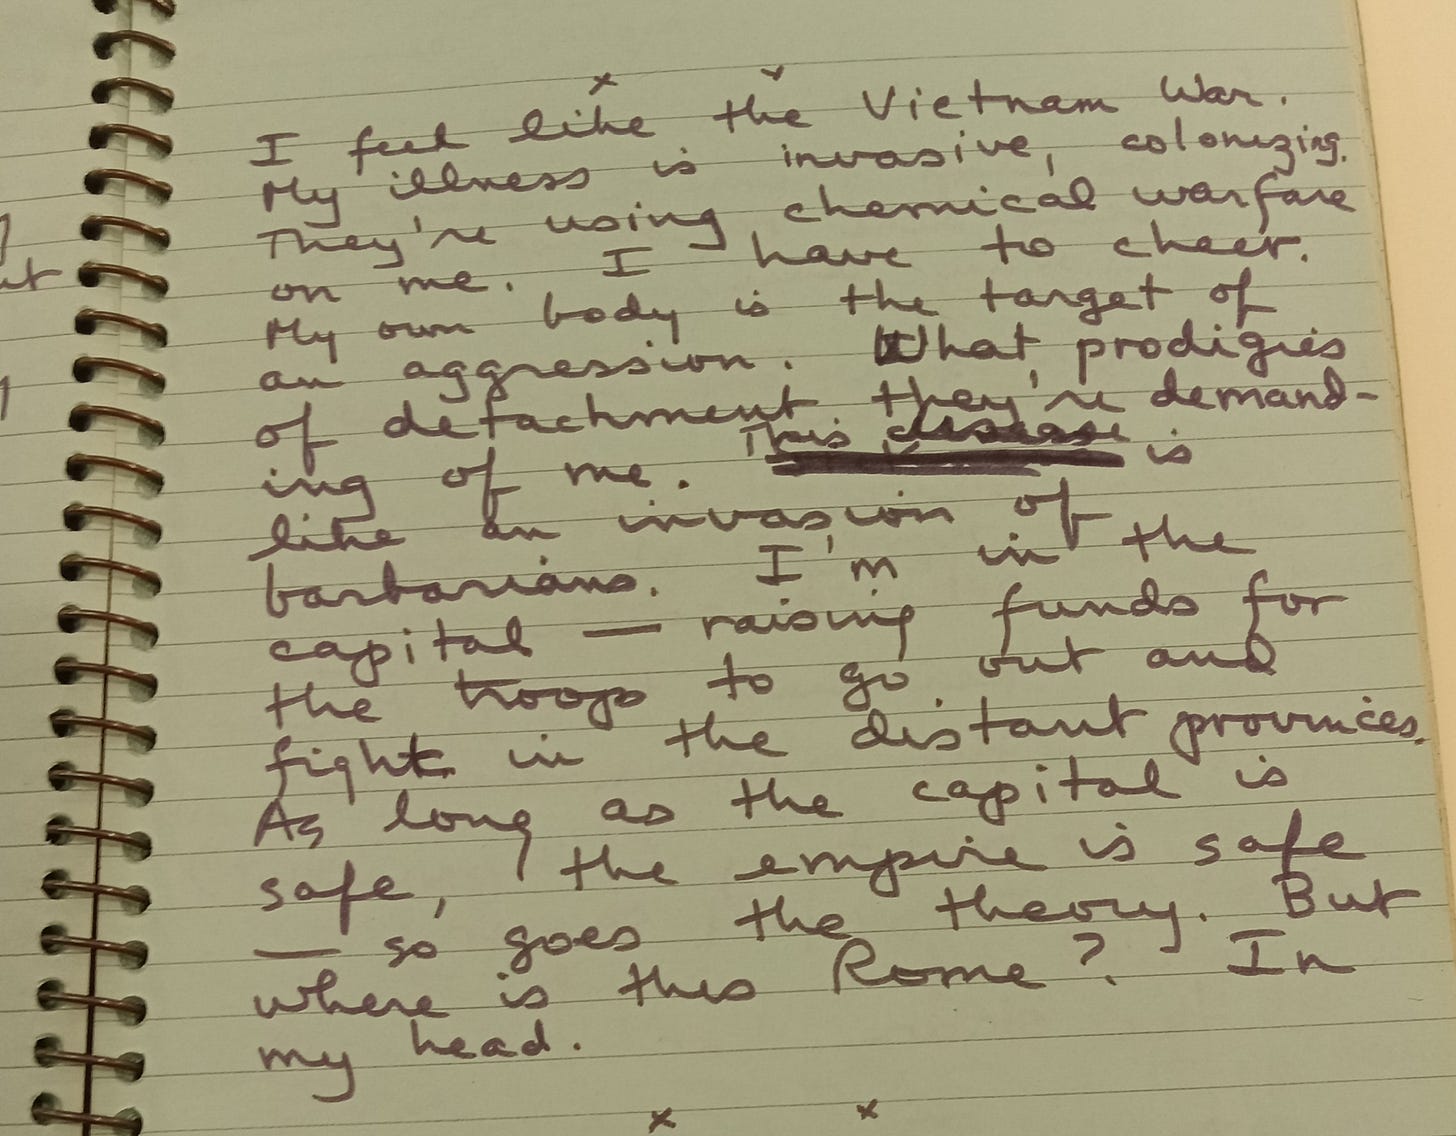 x x
I feel like the Vietnam War.
My illness is invasive, colonizing.
They're using chemical warfare
on me. I have to cheer.
My own body is the target of
an aggression. What prodigies
of detachment they're demand-
ing of me. This disease is
like an invasion of
barbarians. I'm in the
capital — raising funds for
the troops to go out and
fight in the distant provinces.
As long as the capital is
safe, the empire is safe
— so goes the theory. But
where is this Rome? In
my head.
x x